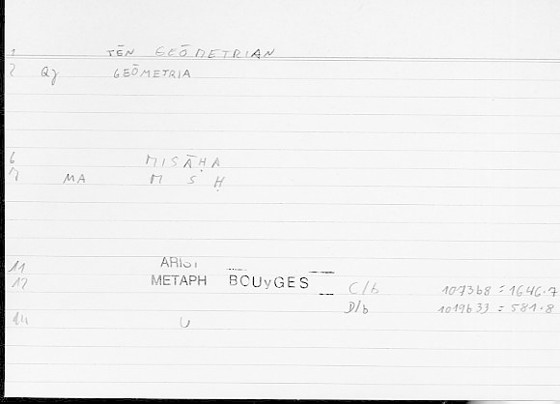 1 TĒN GEŌMETRIAN
2 Qy GEŌMETRIA
6 MISĀḤA
7 MA M S Ḥ
11 ARIST
12 METAPH BOUyGES C/b 1073b8 = 1646.7
D/b 1019b33 = 581.8
14 U